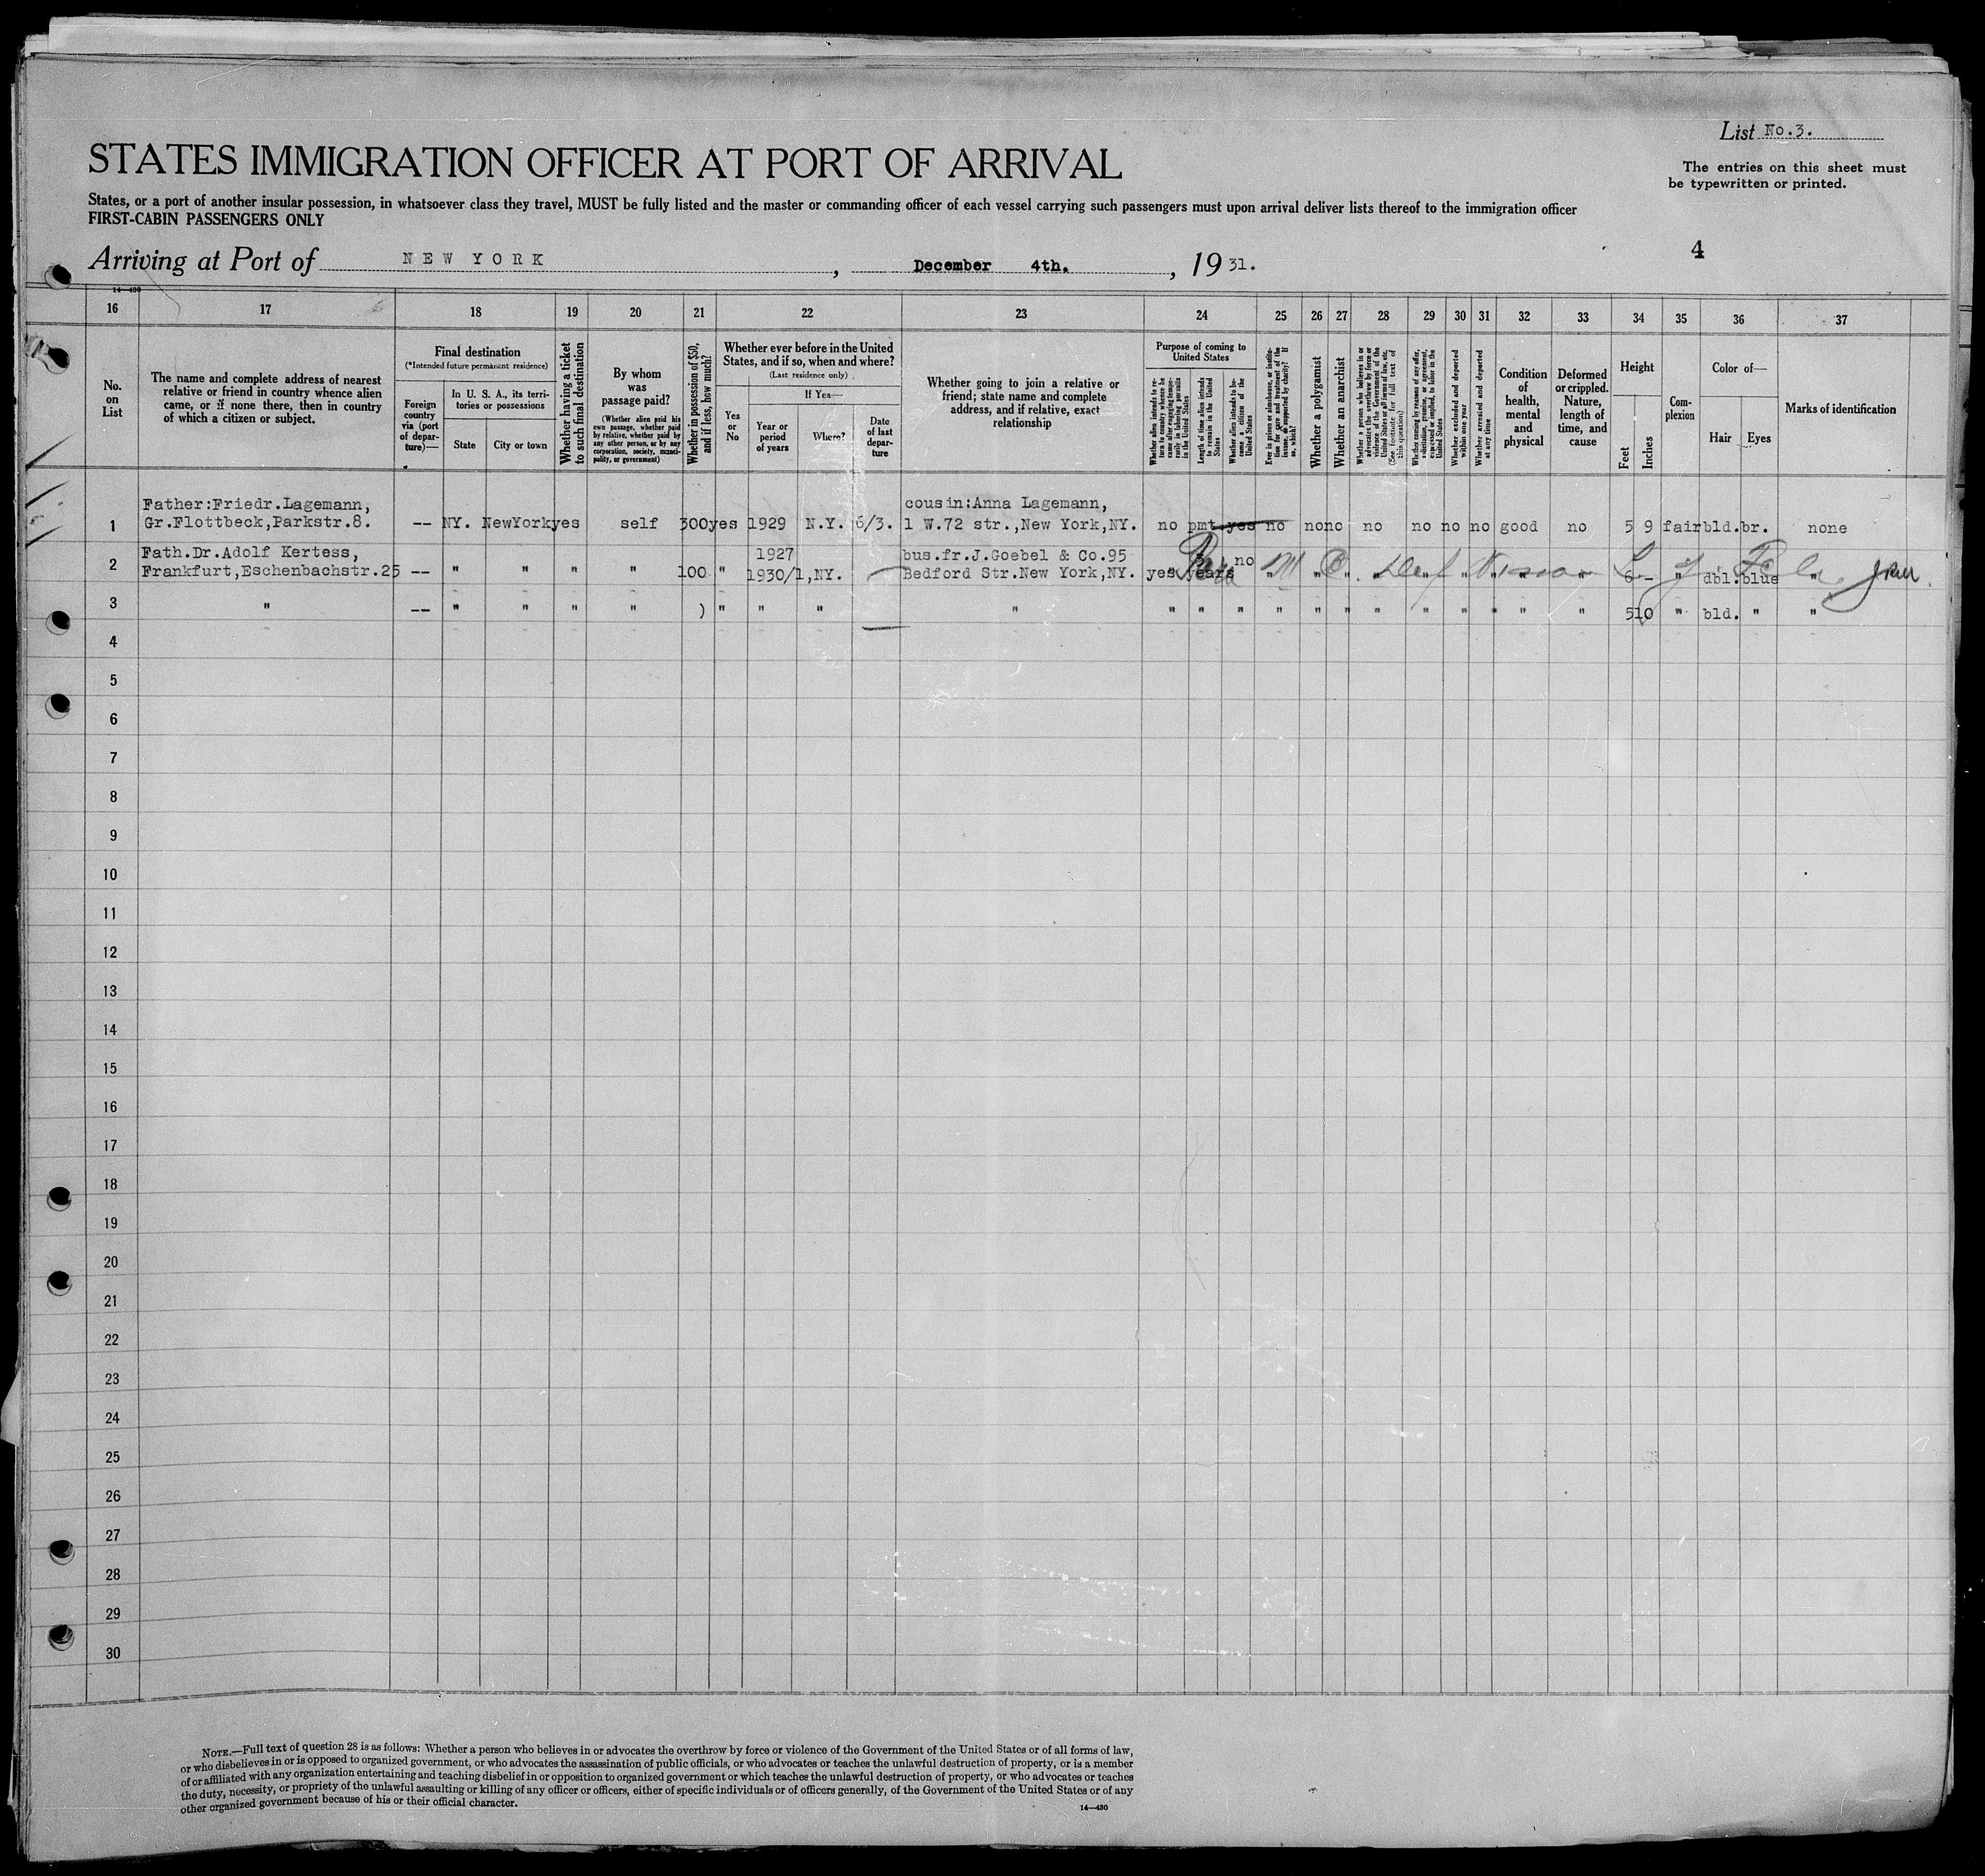 List No.3.
STATES IMMIGRATION OFFICER AT PORT OF ARRIVAL
The entries on this sheet must
be typewritten or printed.
States, or a port of another insular possession, in whatsoever class they travel, MUST be fully listed and the master or commanding officer of each vessel carrying such passengers must upon arrival deliver lists thereof to the immigration officer
FIRST-CABIN PASSENGERS ONLY
4
Arriving at Port of NEW YORK, December 4th., 19 31.
14—430
16 17 18 19 20 21 22 23 24 25 26 27 28 29 30 31 32 33 34 35 36 37
No.
on
List
The name and complete address of nearest
relative or friend in country whence alien
came, or if none there, then in country
of which a citizen or subject.
Final destination
(*Intended future permanent residence)
Foreign
country
via (port
of depar-
ture)—
In U. S. A., its terri-
tories or possessions
State
City or town
Whether having a ticket
to such final destination
By whom
was
passage paid?
(Whether alien paid his
own passage, whether paid
by relative, whether paid by
any other person, or by any
corporation, society, munici-
pality, or government)
Whether in possession of $50,
and if less, how much?
Whether ever before in the United
States, and if so, when and where?
(Last residence only)
Yes
or
No
If Yes—
Year or
period
of years
Where?
Date
of last
depar-
ture
Whether going to join a relative or
friend; state name and complete
address, and if relative, exact
relationship
Purpose of coming to
United States
Whether alien intends to re-
turn to country whence he
came after engaging tempo-
rarily in laboring pursuits
in the United States
Length of time alien intends
to remain in the United
States
Whether alien intends to be-
come a citizen of the
United States
Ever in prison or almshouse, or institu-
tion for care and treatment of the
insane, or supported by charity? If
so, which?
Whether a polygamist
Whether an anarchist
Whether a person who believes in or
advocates the overthrow by force or
violence of the Government of the
United States or all forms of law, etc.
(See footnote for full text of
this question)
Whether coming by reason of any offer,
solicitation, promise, or agreement,
expressed or implied, to labor in the
United States
Whether excluded and deported
within one year
Whether arrested and deported
at any time
Condition
of
health,
mental
and
physical
Deformed
or crippled.
Nature,
length of
time, and
cause
Height
Feet
Inches
Com-
plexion
Color of—
Hair
Eyes
Marks of identification
Father:Friedr.Lagemann, cousin:Anna Lagemann,
1 Gr.Flottbeck,Parkstr.8. -- NY. NewYork yes self 300 yes 1929 N.Y. 6/3. 1 W.72 str.,New York,NY. no pmt yes no no no no no no no good no 5 9 fair bld. br. none
Fath.Dr.Adolf Kertess, 1927 bus.fr.J.Goebel & Co.95 no
2 Frankfurt,Eschenbachstr.25 -- " " " " 100 " 1930/1,NY. Bedford Str.New York,NY. yes years " " " " " " " " " 6 - " dbl. blue "
3 " -- " " " " ) " " " " " " " " " " " " " " " " 5 10 " bld. " "
4
5
6
7
8
9
10
11
12
13
14
15
16
17
18
19
20
21
22
23
24
25
26
27
28
29
30
NOTE.—Full text of question 28 is as follows: Whether a person who believes in or advocates the overthrow by force or violence of the Government of the United States or of all forms of law,
or who disbelieves in or is opposed to organized government, or who advocates the assassination of public officials, or who advocates or teaches the unlawful destruction of property, or is a member
of or affiliated with any organization entertaining and teaching disbelief in or opposition to organized government or which teaches the unlawful destruction of property, or who advocates or teaches
the duty, necessity, or propriety of the unlawful assaulting or killing of any officer or officers, either of specific individuals or of officers generally, of the Government of the United States or of any
other organized government because of his or their official character.
14—430